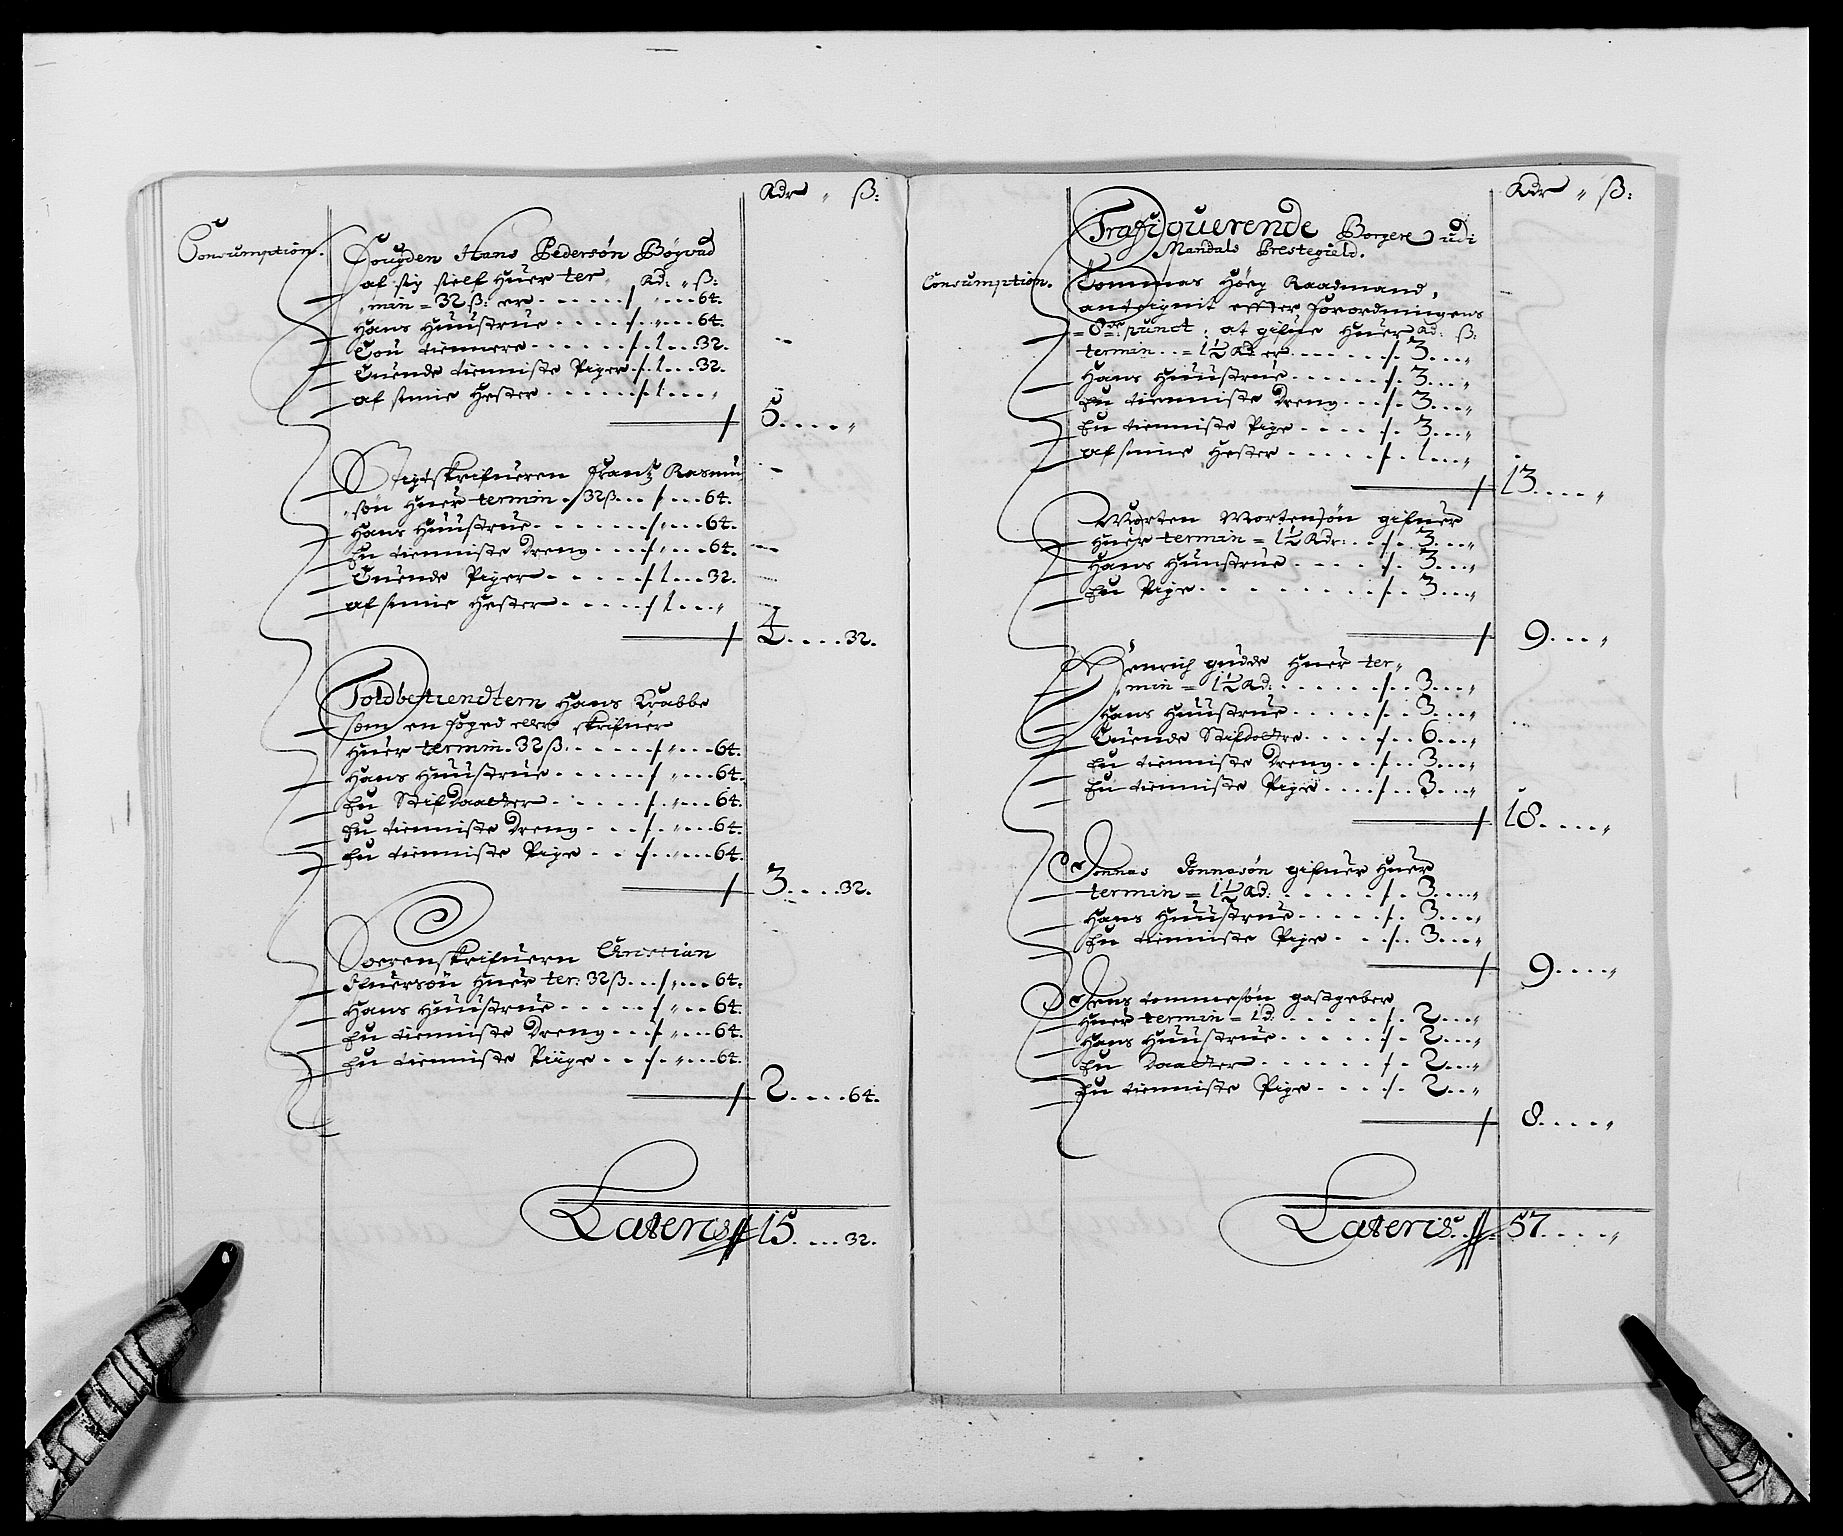 Rdr „ ß:
Consumption.
Fougden Hans Pedersøn Bøgvad
af sig sielf huer ter„ Rd: „ ß:
„min = 32 ß: er . . . . . . / „ . . . 64.
Hans Huustrue . . . . . /. „ . . . 64.
Tou tiennere . . . . . . . /. 1 . . . 32.
Tuende tienniste Piger . /. 1 . . . 32.
af sinne Hester . . . . . . /. 1 . . . „
/ 5 . . . . „
Sigtskrifueren Frantz Rasmu
„søn huer termin . / 32 ß . . . / . . . . 64.
Hans Huustrue . . . . . . . / „ . . . 64.
En tienniste Dreng . . . . / „ . . . 64.
Tuende Piger . . . . . . / 1 . . . 32.
af sinne Hester . . . . . / 1 . . . „
/ 4 . . . . 32.
Toldbetiendtern Hans Krabbe
som en foged eller skrifuer
huer termin . 32 ß . . . . . . / „ . . . 64.
Hans Huustrue . . . . . . / „ . . . 64.
En Stifdaatter . . . . . . /. „ . . . 64.
En tienniste Dreng . . . /. „ . . . 64.
En tienniste Pige . . . /. „ . . . 64.
/ 3 . . . . 32.
Soerenskrifuern Christian
Ifuersøn huer ter: 32 ß . . . / „ . . . 64.
Hans Huustrue . . . . . . / „ . . 64.
En tienniste Dreng . . . / „ . . . 64.
En tienniste Piige . . . /. „ . . . 64.
/ 2 . . . . 64.
Lateris // 15 . . . . 32.
Rdr „ ß:
Trafiquerende Borgere udi
Mandals Prestegield.
Consumption.
Tommas Høeg Raadmand,
anteignit effter forordningens
= 8de: punct : at gifue huer Rd: ß:
termin . . = 1½ Rd er . . . . . . /. 3 . . . „
Hans Huustrue . . . . . . /. 3 . . . „
En tienniste Dreng . . . /. 3 . . . „
En tienniste Pige . . . . /. 3 . . . „
af sinne Hester . . . . . /. 1 . . . „
/ 13 . . . . „
Morten Mortensøn gifuer
huer termin = 1½ Rdr: . . . /. 3 . . . „
Hans Huustrue . . . . /. 3 . . . „
En Pige . . . . . . . . /. 3 . . . „
/ 9 . . . „
Henrich gudde huer ter„
„min = 1½ Rd: . . . . . . . /. 3 . . . „
Hans Huustrue . . . . . . /. 3 . . . „
Tuende Stifdottre . . . . /. 6 . . . „
En tienniste Dreng . . /. 3 . . . „
En tienniste Pige . . . . /. 3 . . . „
/ 18 . . . . „
Jonnas Jonnasøn gifuer huer
termin = 1½ Rd: . . . . . . /. 3 . . . . „
Hans Huustrue . . . . . /. 3 . . . „
En tienniste Pige . . . /. 3 . . . „
/ 9 . . . . „
Jens tommesøn gastgeber
huer termin = 1 d: . . . . . . /. 2 . . . „
Hans Huustrue . . . . . . /. 2 . . . „
En Daatter . . . . . . . /. 2 . . . „
En tienniste Pige . . . . /. 2 . . „
/ 8 . . . . „
Lateris . . // = 57 . . . . „